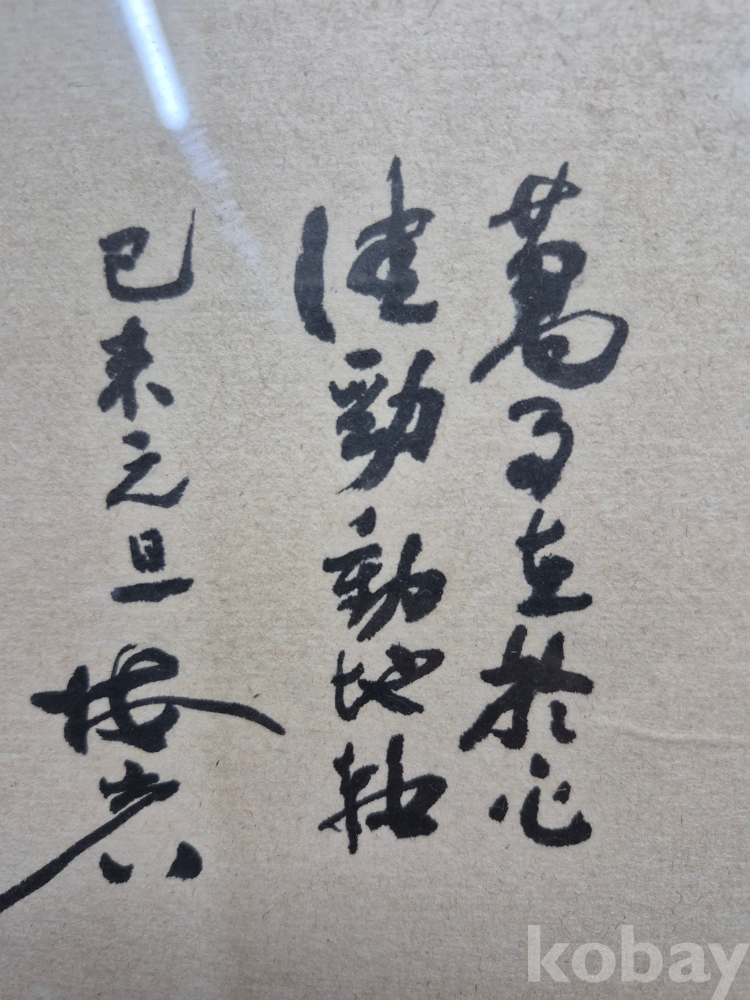 萬事在於心
健勁動地軸
己未元旦
kobay